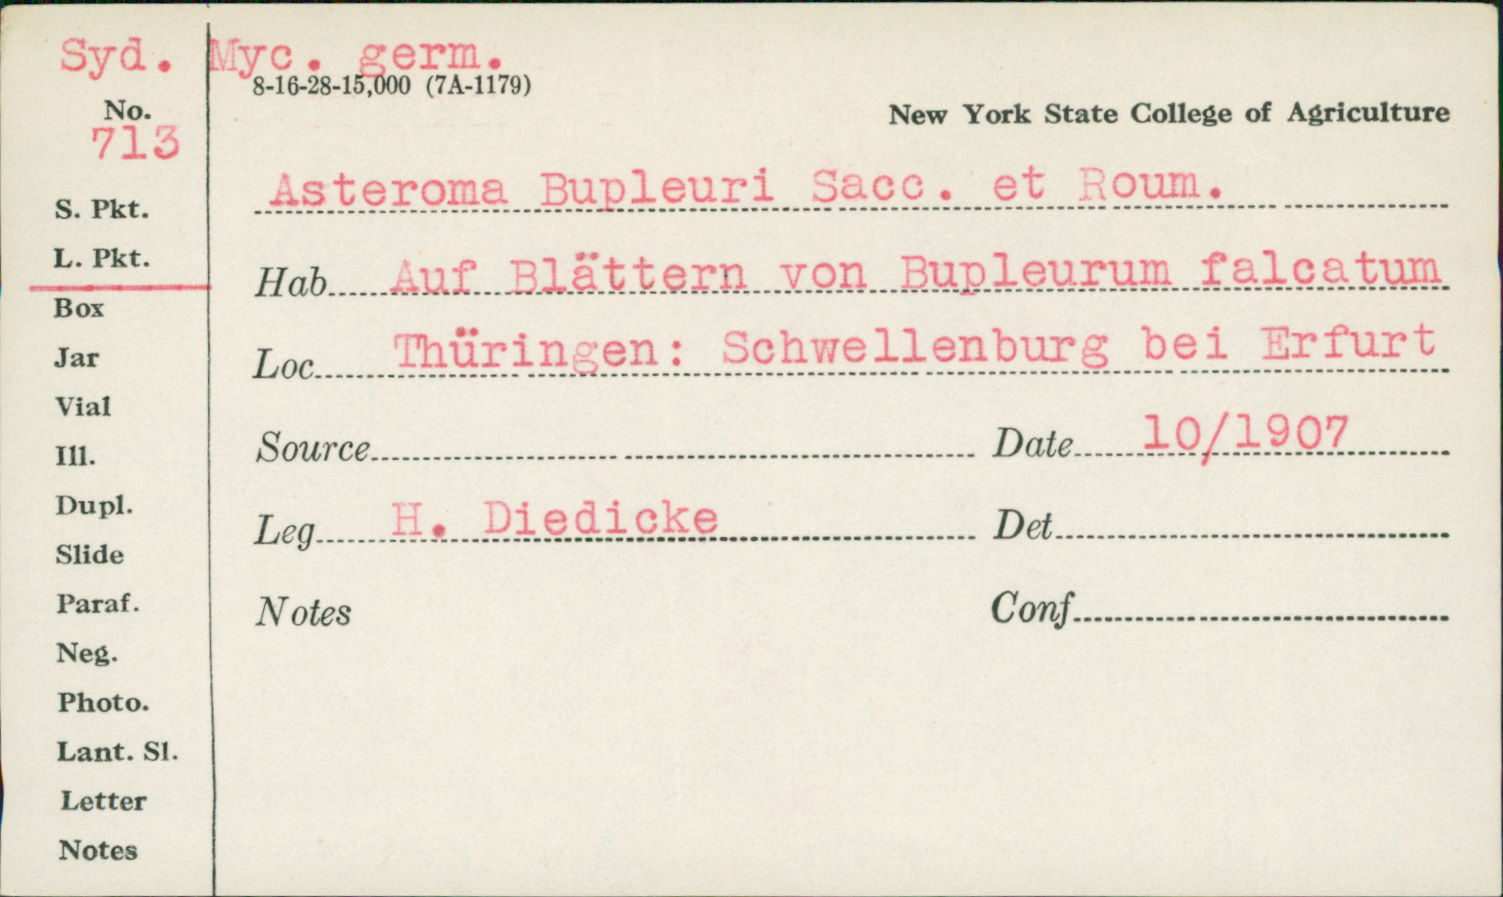 Syd. Myc. germ.
8-16-28-15,000 (7A-1179)
No.
New York State College of Agriculture
713
Asteroma Bupleuri Sacc. et Roum.
S. Pkt.
L. Pkt.
Hab. Auf Blättern von Bupleurum falcatum
Box
Jar
Loc. Thüringen: Schwellenburg bei Erfurt
Vial
Source Date 10/1907
Ill.
Dupl.
Leg. H. Diedicke Det
Slide
Paraf.
Notes Conf
Neg.
Photo.
Lant. Sl.
Letter
Notes